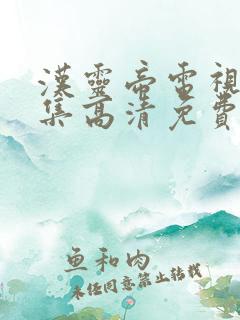 漢靈帝電視
集高清免費
鱼和肉
未经同意禁止转载